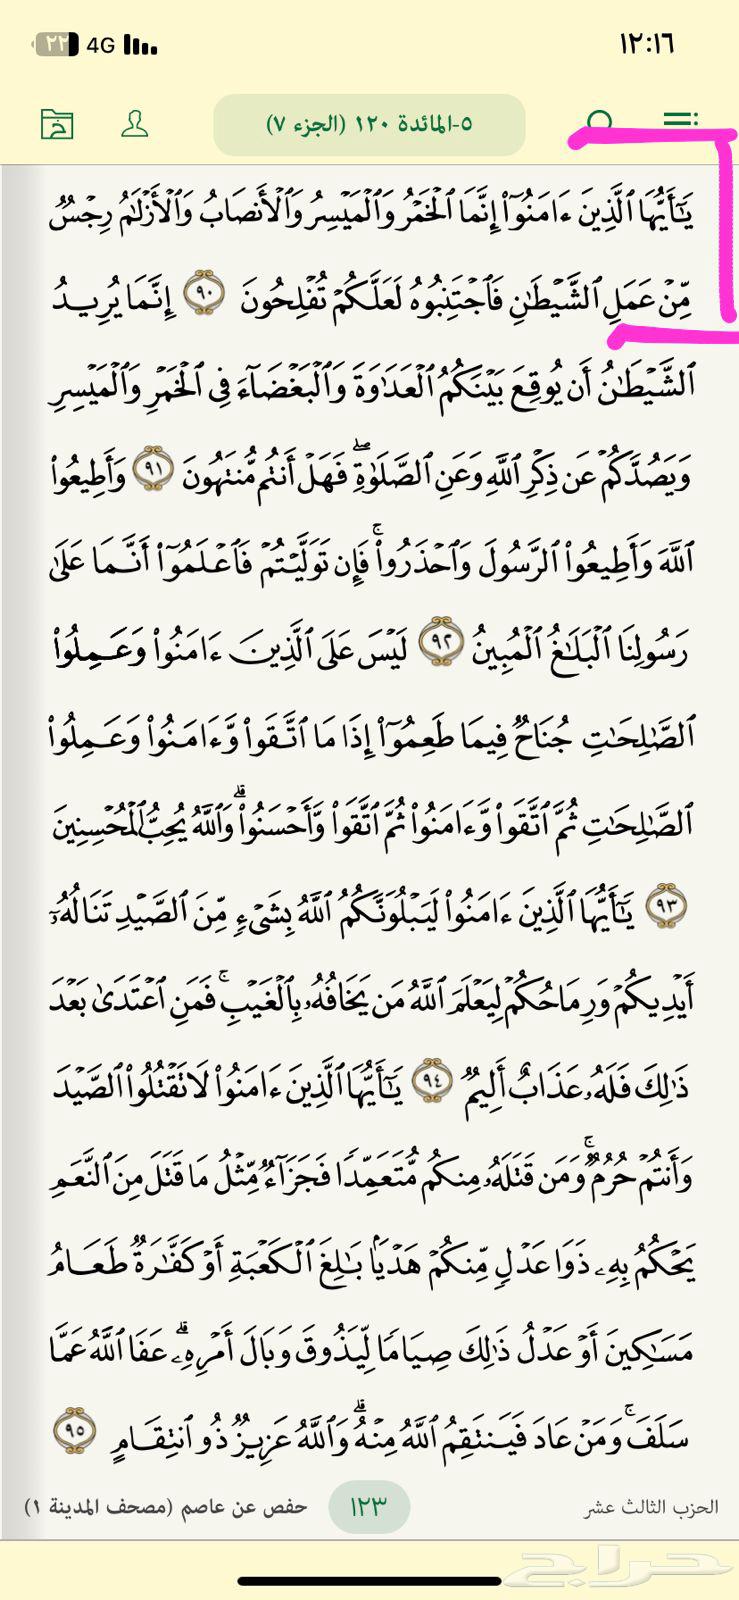 ١٢:١٦
4G ٢٢
٥-المائدة ١٢٠ (الجزء ٧)
يَٰٓأَيُّهَا ٱلَّذِينَ ءَامَنُوٓاْ إِنَّمَا ٱلۡخَمۡرُ وَٱلۡمَيۡسِرُ وَٱلۡأَنصَابُ وَٱلۡأَزۡلَٰمُ رِجۡسٞ
مِّنۡ عَمَلِ ٱلشَّيۡطَٰنِ فَٱجۡتَنِبُوهُ لَعَلَّكُمۡ تُفۡلِحُونَ ٩٠ إِنَّمَا يُرِيدُ
ٱلشَّيۡطَٰنُ أَن يُوقِعَ بَيۡنَكُمُ ٱلۡعَدَٰوَةَ وَٱلۡبَغۡضَآءَ فِي ٱلۡخَمۡرِ وَٱلۡمَيۡسِرِ
وَيَصُدَّكُمۡ عَن ذِكۡرِ ٱللَّهِ وَعَنِ ٱلصَّلَوٰةِۖ فَهَلۡ أَنتُم مُّنتَهُونَ ٩١ وَأَطِيعُواْ
ٱللَّهَ وَأَطِيعُواْ ٱلرَّسُولَ وَٱحۡذَرُواْۚ فَإِن تَوَلَّيۡتُمۡ فَٱعۡلَمُوٓاْ أَنَّمَا عَلَىٰ
رَسُولِنَا ٱلۡبَلَٰغُ ٱلۡمُبِينُ ٩٢ لَيۡسَ عَلَى ٱلَّذِينَ ءَامَنُواْ وَعَمِلُواْ
ٱلصَّٰلِحَٰتِ جُنَاحٞ فِيمَا طَعِمُوٓاْ إِذَا مَا ٱتَّقَواْ وَّءَامَنُواْ وَعَمِلُواْ
ٱلصَّٰلِحَٰتِ ثُمَّ ٱتَّقَواْ وَّءَامَنُواْ ثُمَّ ٱتَّقَواْ وَّأَحۡسَنُواْۗ وَٱللَّهُ يُحِبُّ ٱلۡمُحۡسِنِينَ
٩٣ يَٰٓأَيُّهَا ٱلَّذِينَ ءَامَنُواْ لَيَبۡلُوَنَّكُمُ ٱللَّهُ بِشَيۡءٖ مِّنَ ٱلصَّيۡدِ تَنَالُهُۥٓ
أَيۡدِيكُمۡ وَرِمَاحُكُمۡ لِيَعۡلَمَ ٱللَّهُ مَن يَخَافُهُۥ بِٱلۡغَيۡبِۚ فَمَنِ ٱعۡتَدَىٰ بَعۡدَ
ذَٰلِكَ فَلَهُۥ عَذَابٌ أَلِيمٞ ٩٤ يَٰٓأَيُّهَا ٱلَّذِينَ ءَامَنُواْ لَا تَقۡتُلُواْ ٱلصَّيۡدَ
وَأَنتُمۡ حُرُمٞۚ وَمَن قَتَلَهُۥ مِنكُم مُّتَعَمِّدٗا فَجَزَآءٞ مِّثۡلُ مَا قَتَلَ مِنَ ٱلنَّعَمِ
يَحۡكُمُ بِهِۦ ذَوَا عَدۡلٖ مِّنكُمۡ هَدۡيَۢا بَٰلِغَ ٱلۡكَعۡبَةِ أَوۡ كَفَّٰرَةٞ طَعَامُ
مَسَٰكِينَ أَوۡ عَدۡلُ ذَٰلِكَ صِيَامٗا لِّيَذُوقَ وَبَالَ أَمۡرِهِۦۗ عَفَا ٱللَّهُ عَمَّا
سَلَفَۚ وَمَنۡ عَادَ فَيَنتَقِمُ ٱللَّهُ مِنۡهُۗ وَٱللَّهُ عَزِيزٞ ذُو ٱنتِقَامٍ ٩٥
الحزب الثالث عشر
١٢٣
حفص عن عاصم (مصحف المدينة ١)
حراج